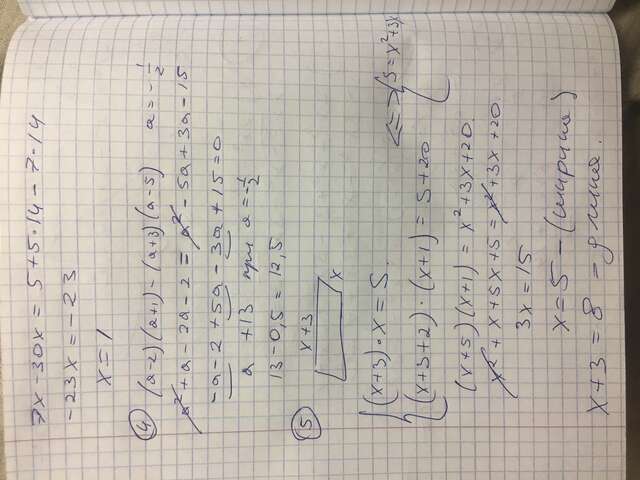 7x - 30x = 5 + 5·14 - 7·14
-23x = -23
x = 1
④ (a-2)(a+1) - (a+3)(a-5) a = -1/2
a² + a - 2a - 2 = a² - 5a + 3a - 15
-a - 2 + 5a - 3a + 15 = 0
a + 13 при a = -1/2
13 - 0,5 = 12,5
⑤
x+3
x
(x+3)·x = S
(x+3+2)·(x+1) = S + 20
<=> S = x² + 3x
(x+5)(x+1) = x² + 3x + 20
x² + x + 5x + 5 = x² + 3x + 20
3x = 15
x = 5 - (ширина)
x + 3 = 8 - длина.